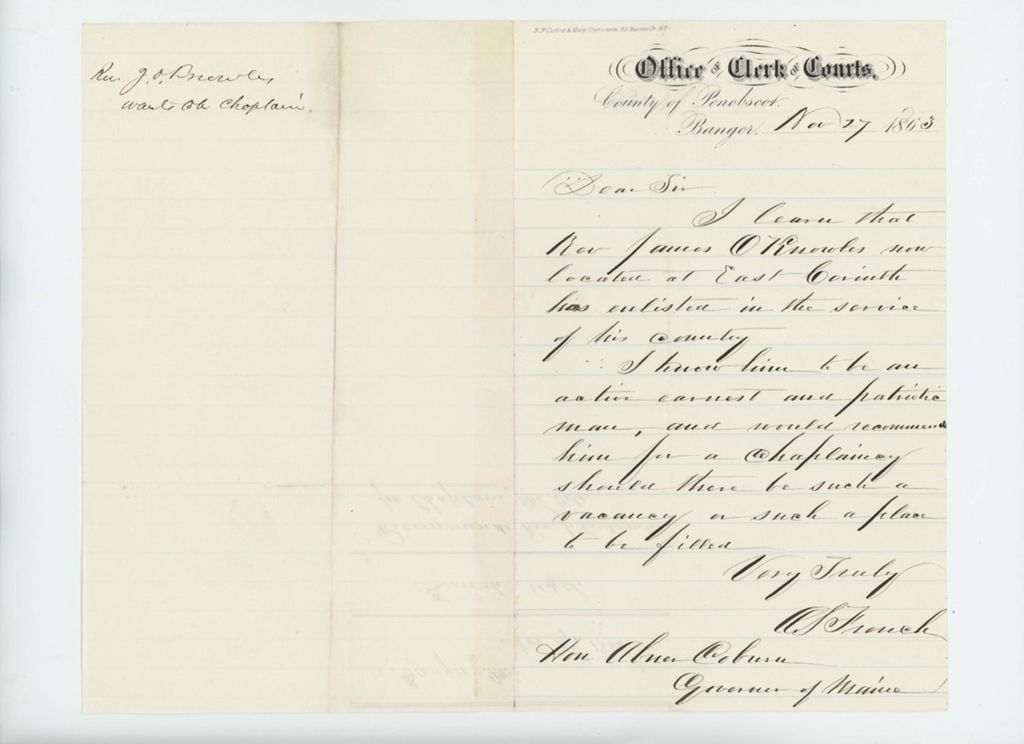 Rev. J. O. Knowles
wants to be Chaplain.
Office of Clerk of Courts,
County of Penobscot.
Bangor, Nov 27 1863
Dear Sir
I learn that
Rev James O Knowles now
located at East Corinth
has enlisted in the service
of his country
I know him to be an
active earnest and patriotic
man, and would recommend
him for a Chaplaincy
should there be such a
vacancy or such a place
to be filled
Very Truly
A S French
Hon Abner Coburn
Governor of Maine